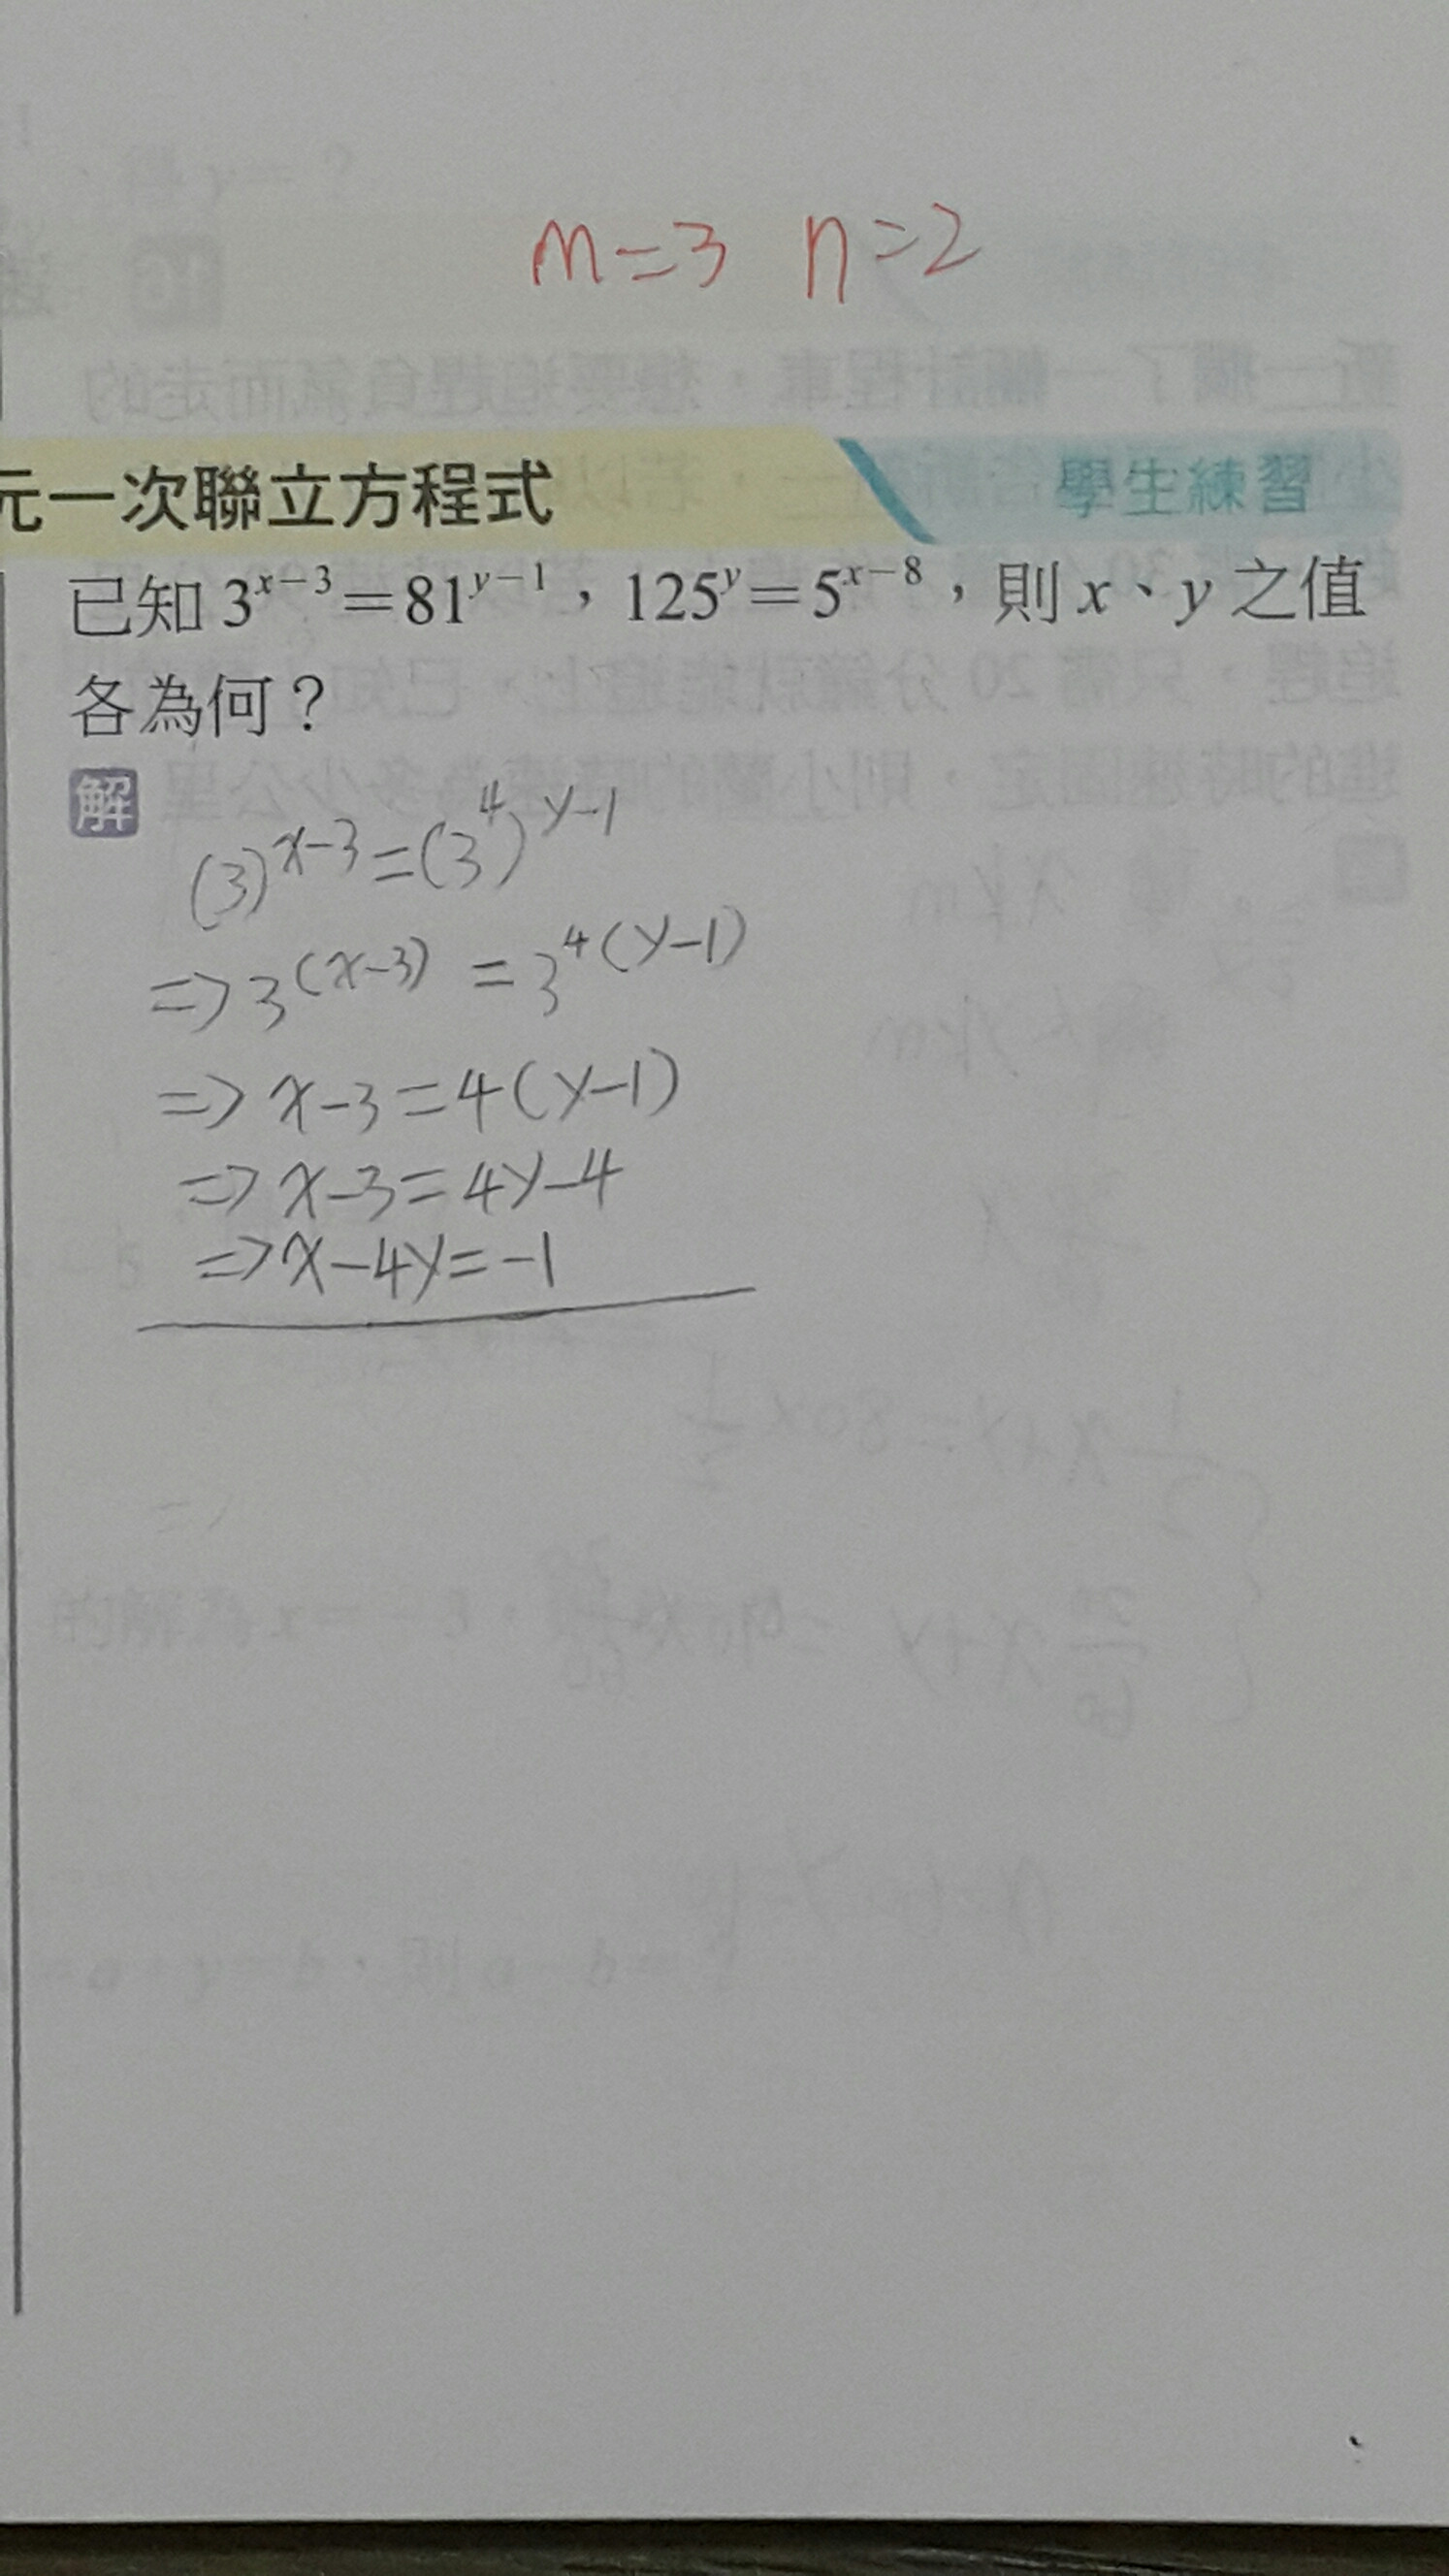 m=3 n=2
元一次聯立方程式 學生練習
已知 3^{x-3}=81^{y-1}，125^y=5^{x-8}，則 x、y 之值
各為何？
解
(3)^{x-3}=(3^4)^{y-1}
=>3^{(x-3)}=3^{4(y-1)}
=>x-3=4(y-1)
=>x-3=4y-4
=>x-4y=-1